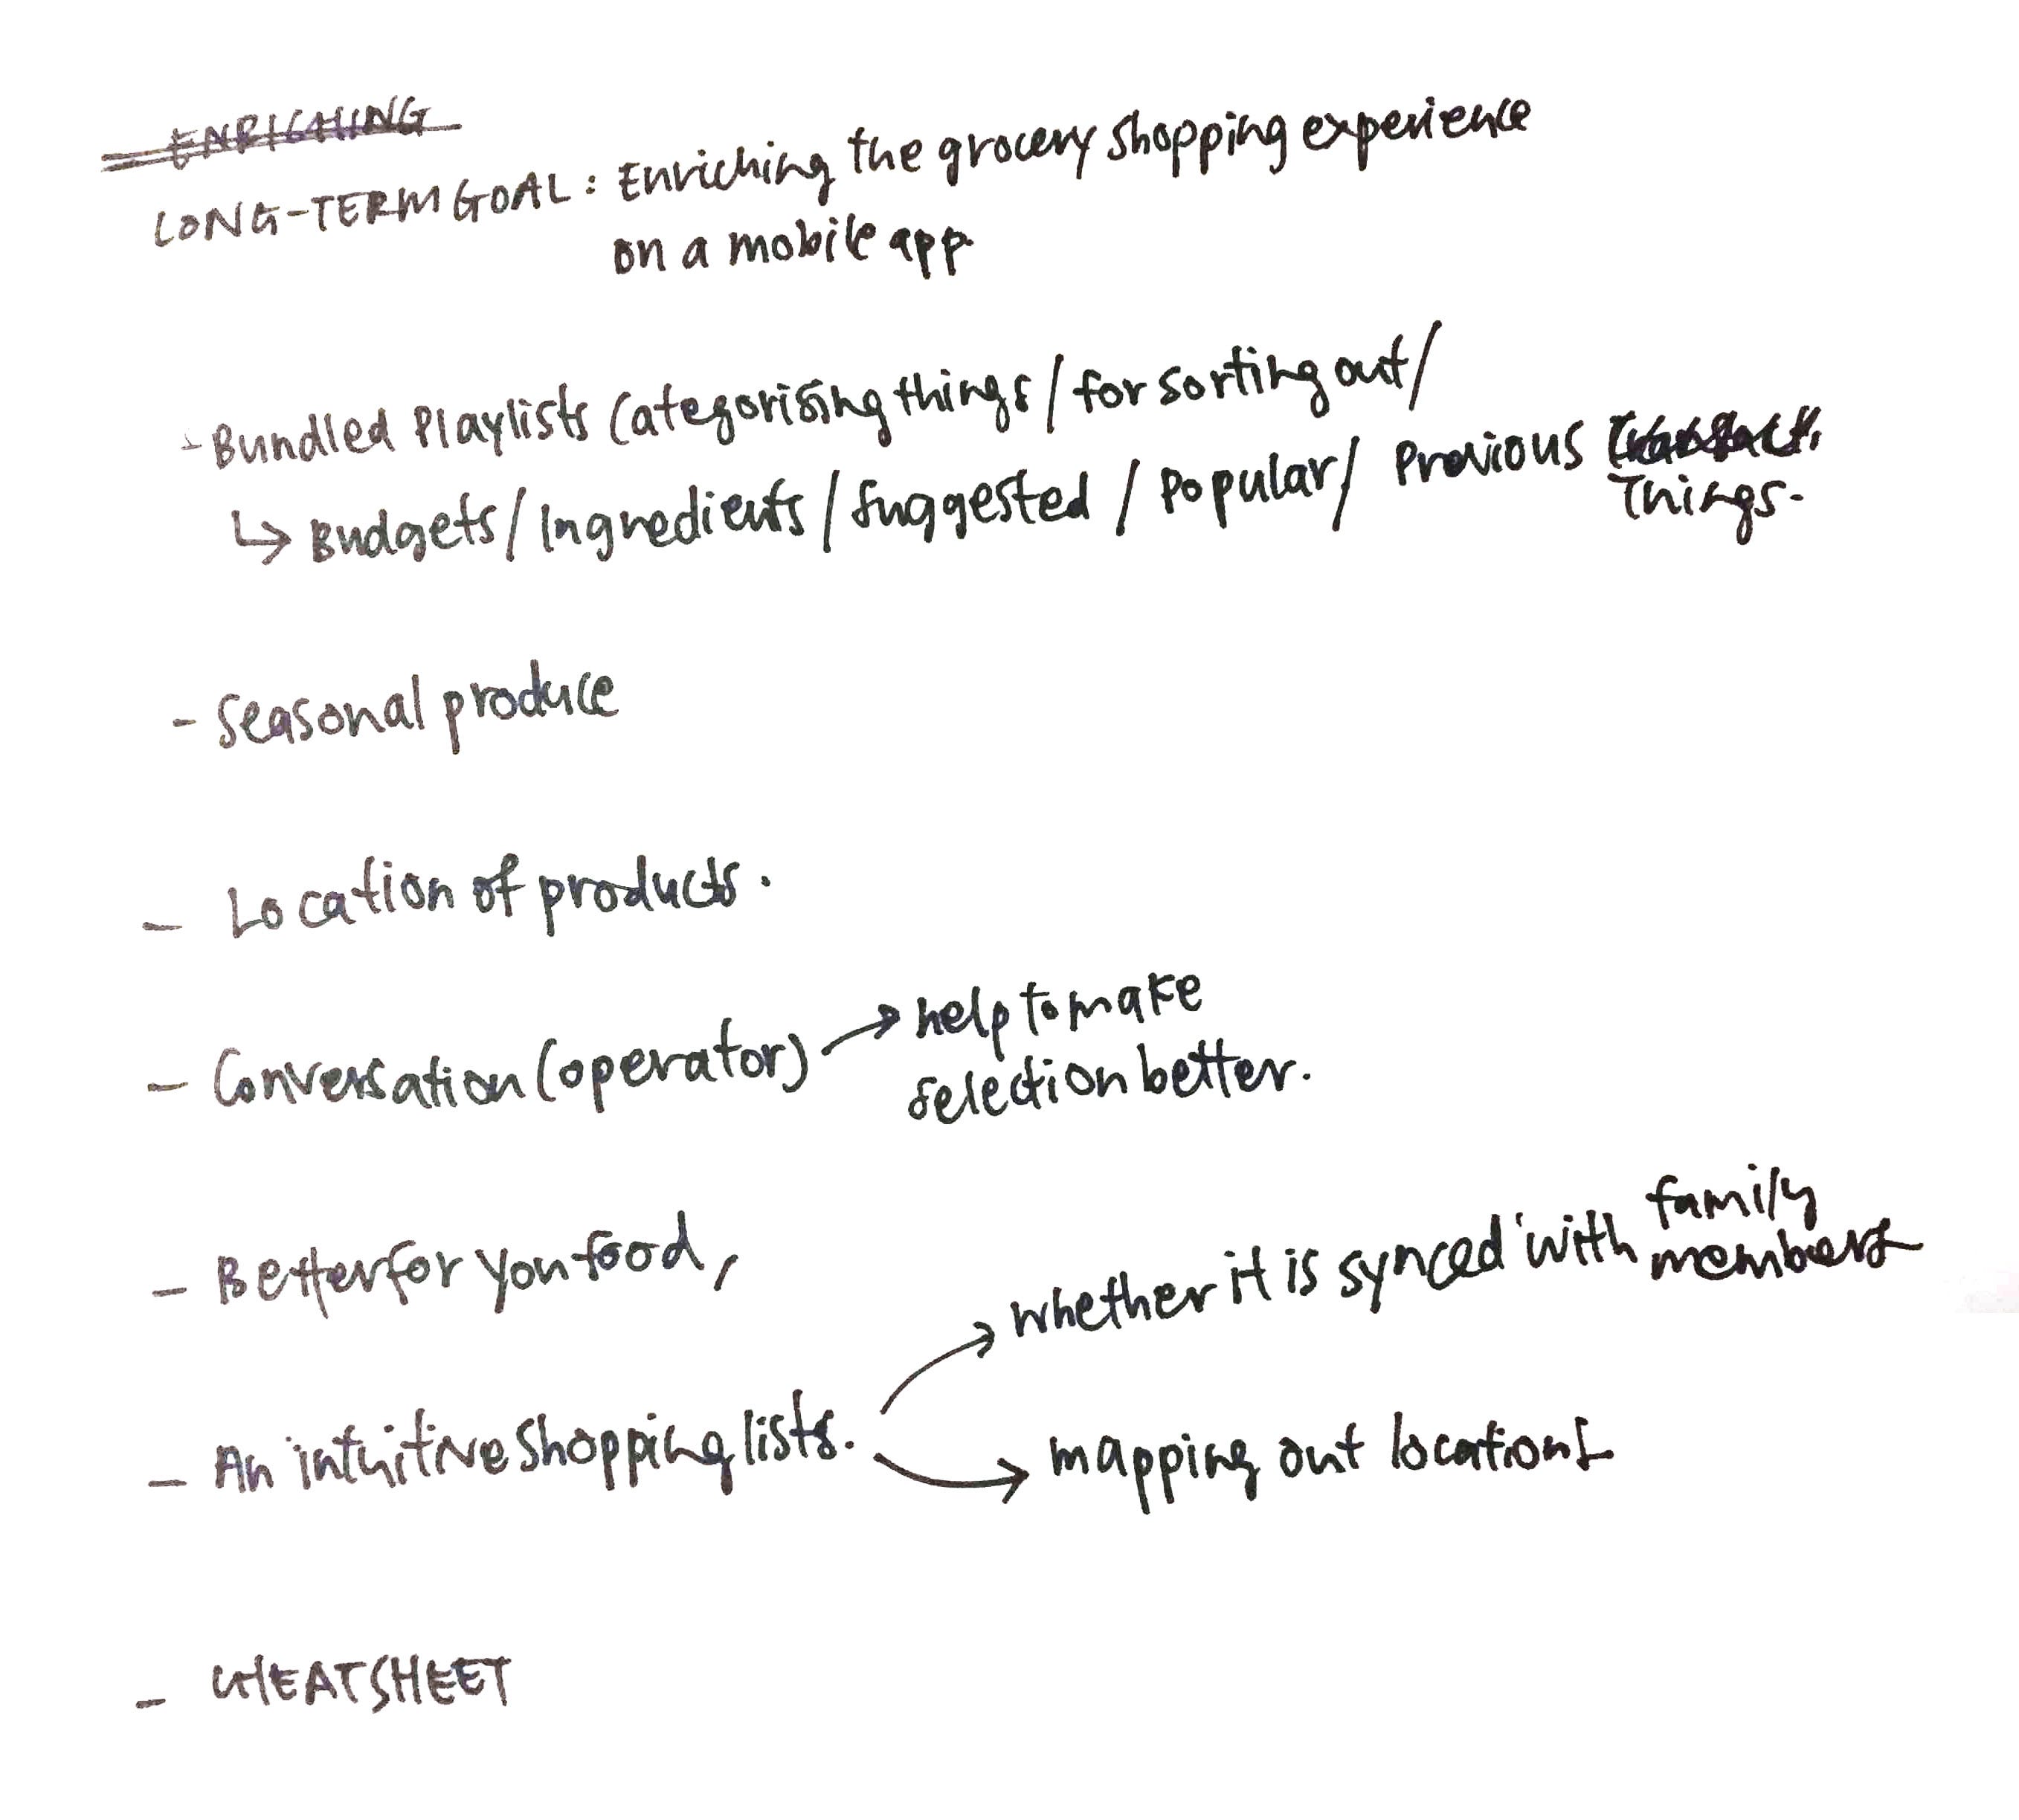 ENRICHING
LONG-TERM GOAL: Enriching the grocery shopping experience
on a mobile app.
- Bundled Playlists Categorising things / for sorting out /
↳ Budgets / Ingredients / Suggested / Popular / Previous
Things.
- Seasonal produce
- Location of products.
- Conversation (operator) → help to make
selection better.
- Better for you food,
whether it is synced with family
members
- An intuitive shopping lists.
→ mapping out locations
- CHEATSHEET